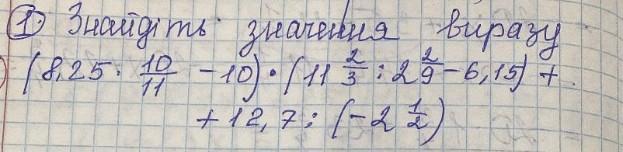 1. Знайдіть значення виразу
(8,25 · 10/11 - 10) · (11 2/3 : 2 2/9 - 6,15) +
+ 12,7 : (-2 1/2)